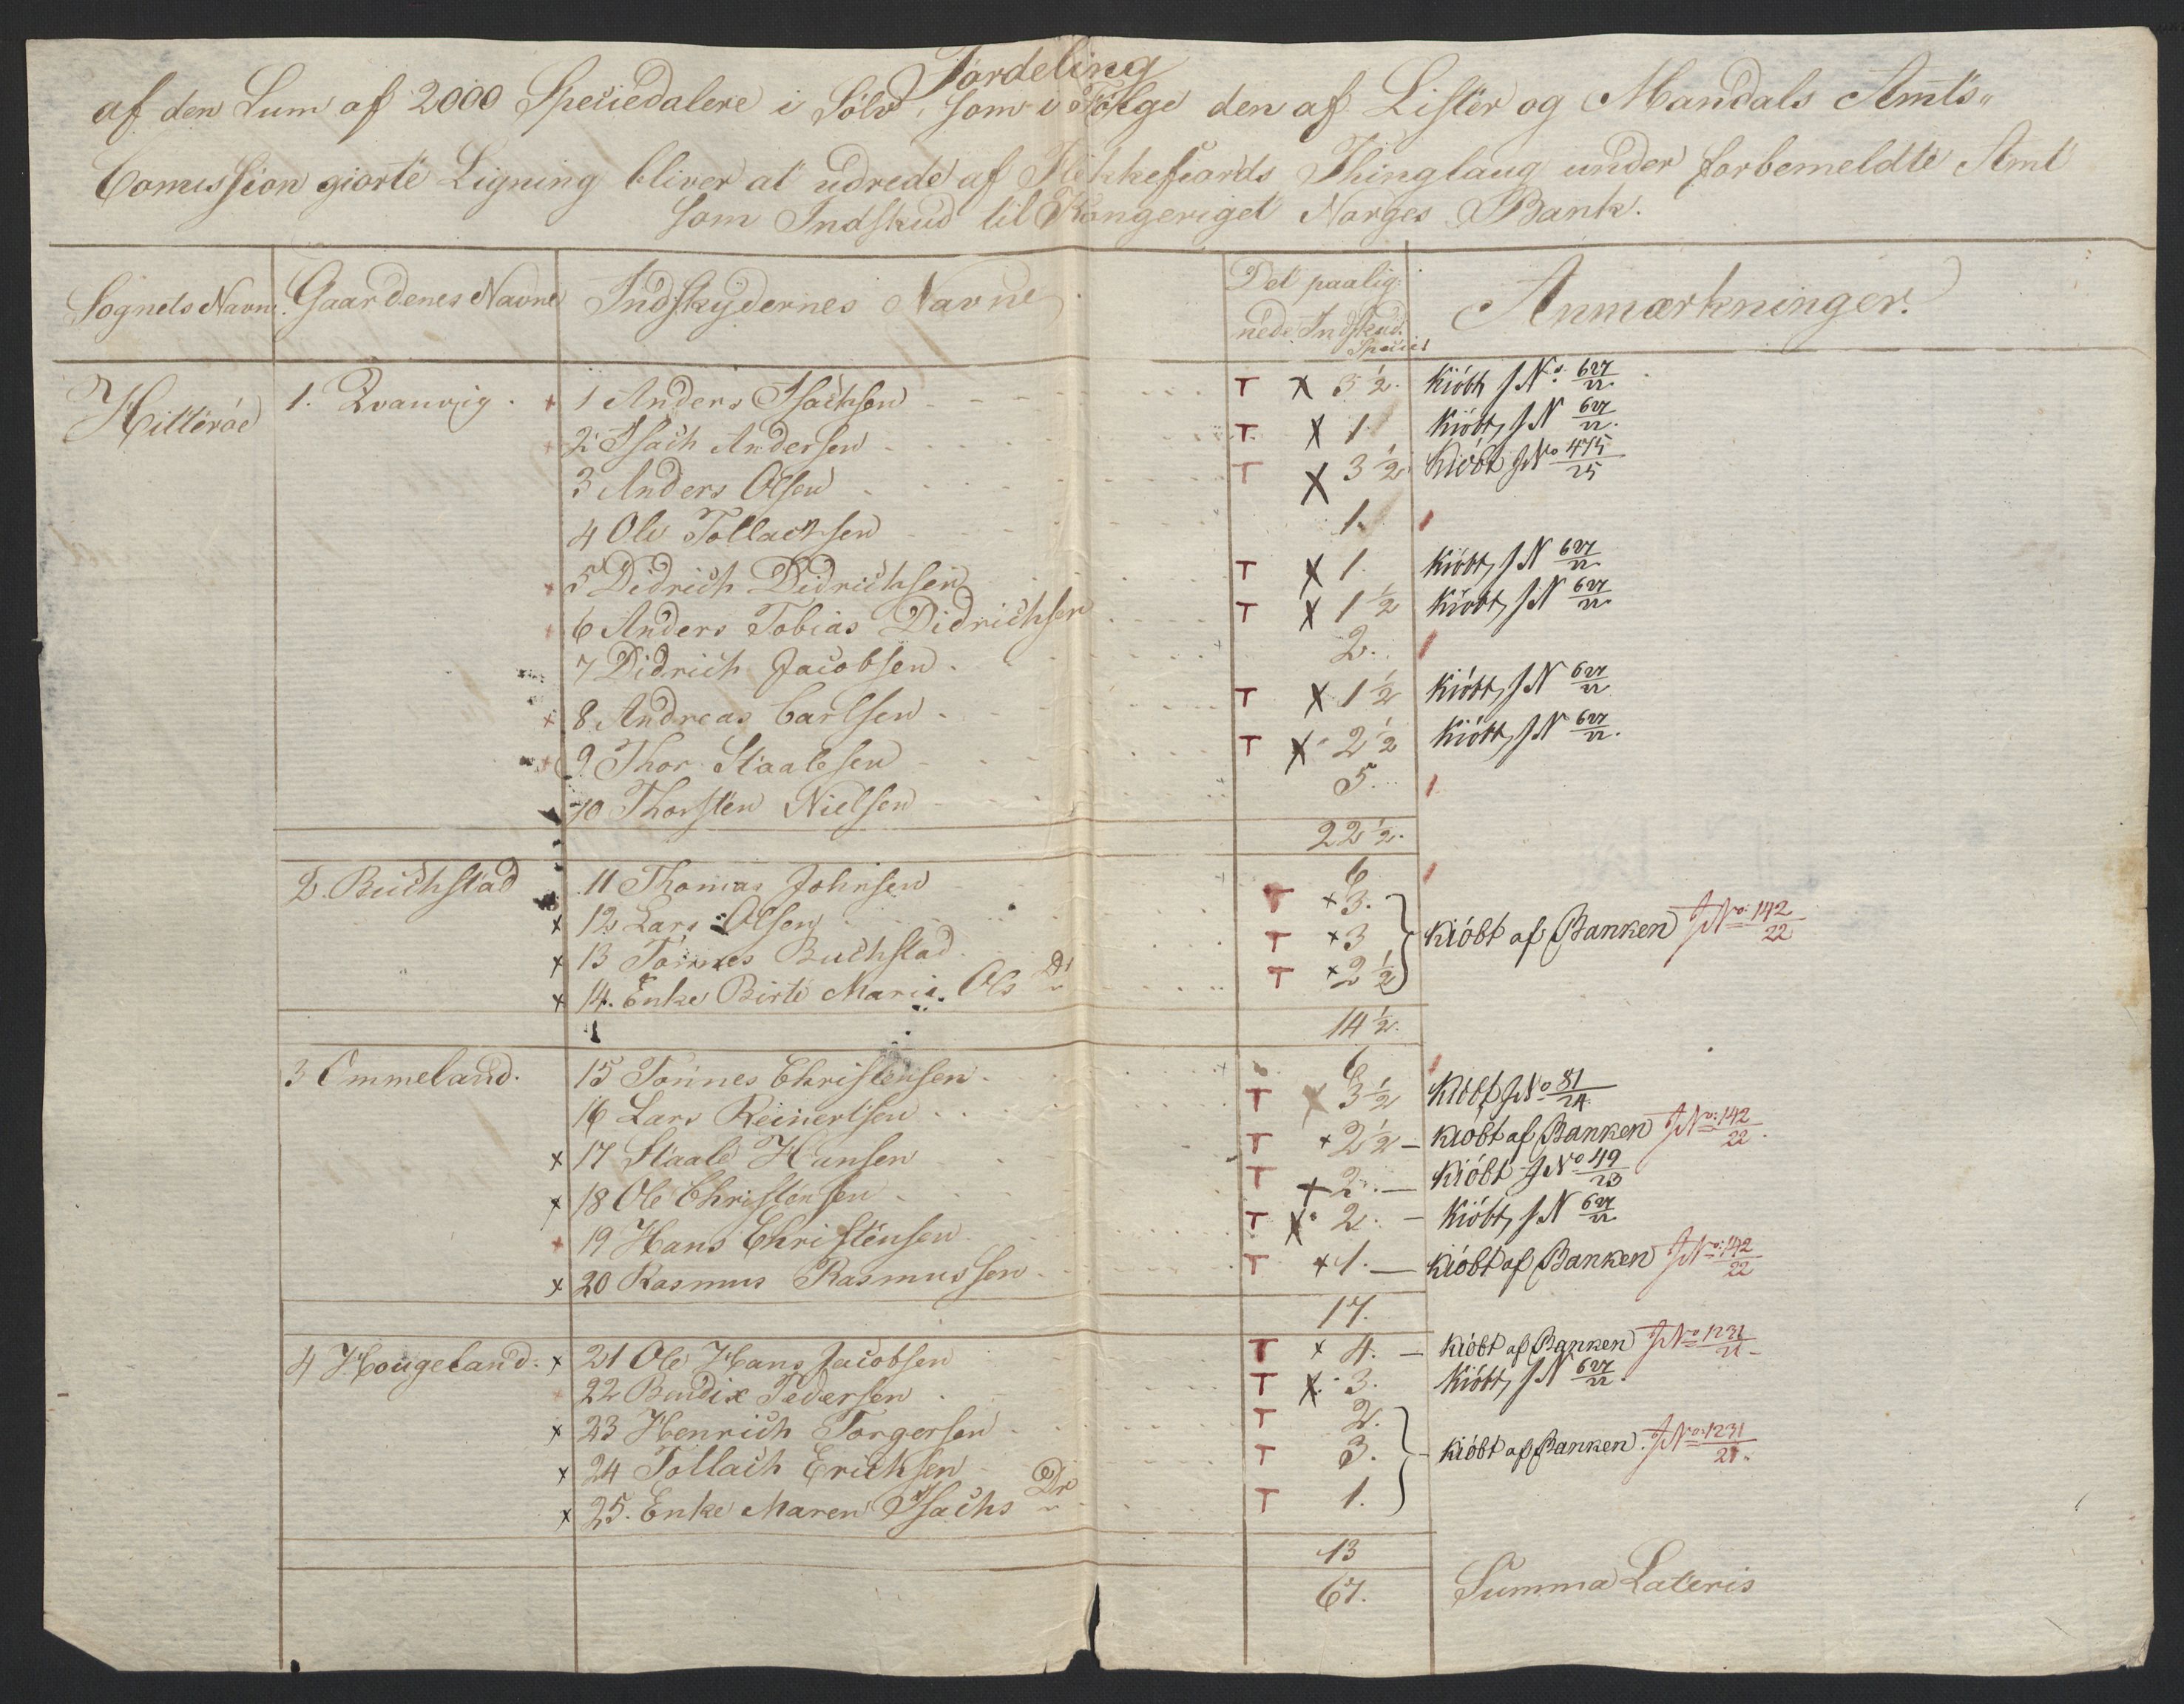 Fordeling
af den Sum af 2000 Speciedalere i Sölv, som i Fölge den af Lister og Mandals Amts-
Comission giorte Ligning bliver at udrede af Flekkefiords Thinglaug under forbemeldte Amt
som Indskud til Kongeriget Norges Bank.
Sognets Navn. Gaardenes Navne Indskydernes Navne Det paalig: Anmærkninger.
nede Indskud.
Species
Hitteröe 1. Qvanvig. + 1 Anders Isachsen T X 3 1/2. Kiöbt JNo. 627/22.
+ 2 Isach Andersen T. X 1. Kiöbt, JN 627/22.
3 Anders Olsen T X 3 1/2 Kiöbt JNo 475/25
4 Ole Tollachsen 1.
+ 5 Didrich Didrichsen T X 1. Kiöbt, JN 627/22
+ 6 Anders Tobias Didrichsen T X 1 1/2 Kiöbt, JN 627/22
7 Didrich Jacobsen. 2.
+ 8 Andreas Carlsen. T X 1 1/2 Kiöbt, JN 627/22
+ 9. Thor Staalesen T X 2 1/2 Kiöbt, JN 627/22.
10 Thorsten Nielsen 5.
22 1/2.
2. Buchstad 11 Thomas Johnsen 6
x 12 Lars Olsen T x 3.
x 13 Tönnes Buchstad. T x 3 Kiöbt af Banken JNo: 142/22
x 14. Enke Birte Marie Ols Dr T x 2 1/2
14 1/2.
3 Ommeland. 15 Tönnes Christensen. 6
16 Lars Reinertsen T X 3 1/2 Kiöbt JNo 81/24.
x 17 Staale Hansen T x 2 1/2 – Kiöbt af Banken JNo: 142/22.
x 18 Ole Christensen T + 2. – Kiöbt JNo 49/23
+ 19 Hans Christensen T X 2. – Kiöbt, JN 627/22
x 20 Rasmus Rasmussen T + 1. – Kiöbt af Banken JNo: 142/22
17.
4 Hougeland. x 21 Ole Hans Jacobsen T x 4. – Kiöbt af Banken JNo 1231/21
+ 22 Bendix Pedersen T X 3. Kiöbt, JN 627/22.
x 23 Henrich Torgersen T 2.
x 24 Tollach Erichsen T 3. Kiöbt af Banken. JNo: 1231/21.
x 25. Enke Maren Isachs Dr T 1.
13
67. Summa Lateris